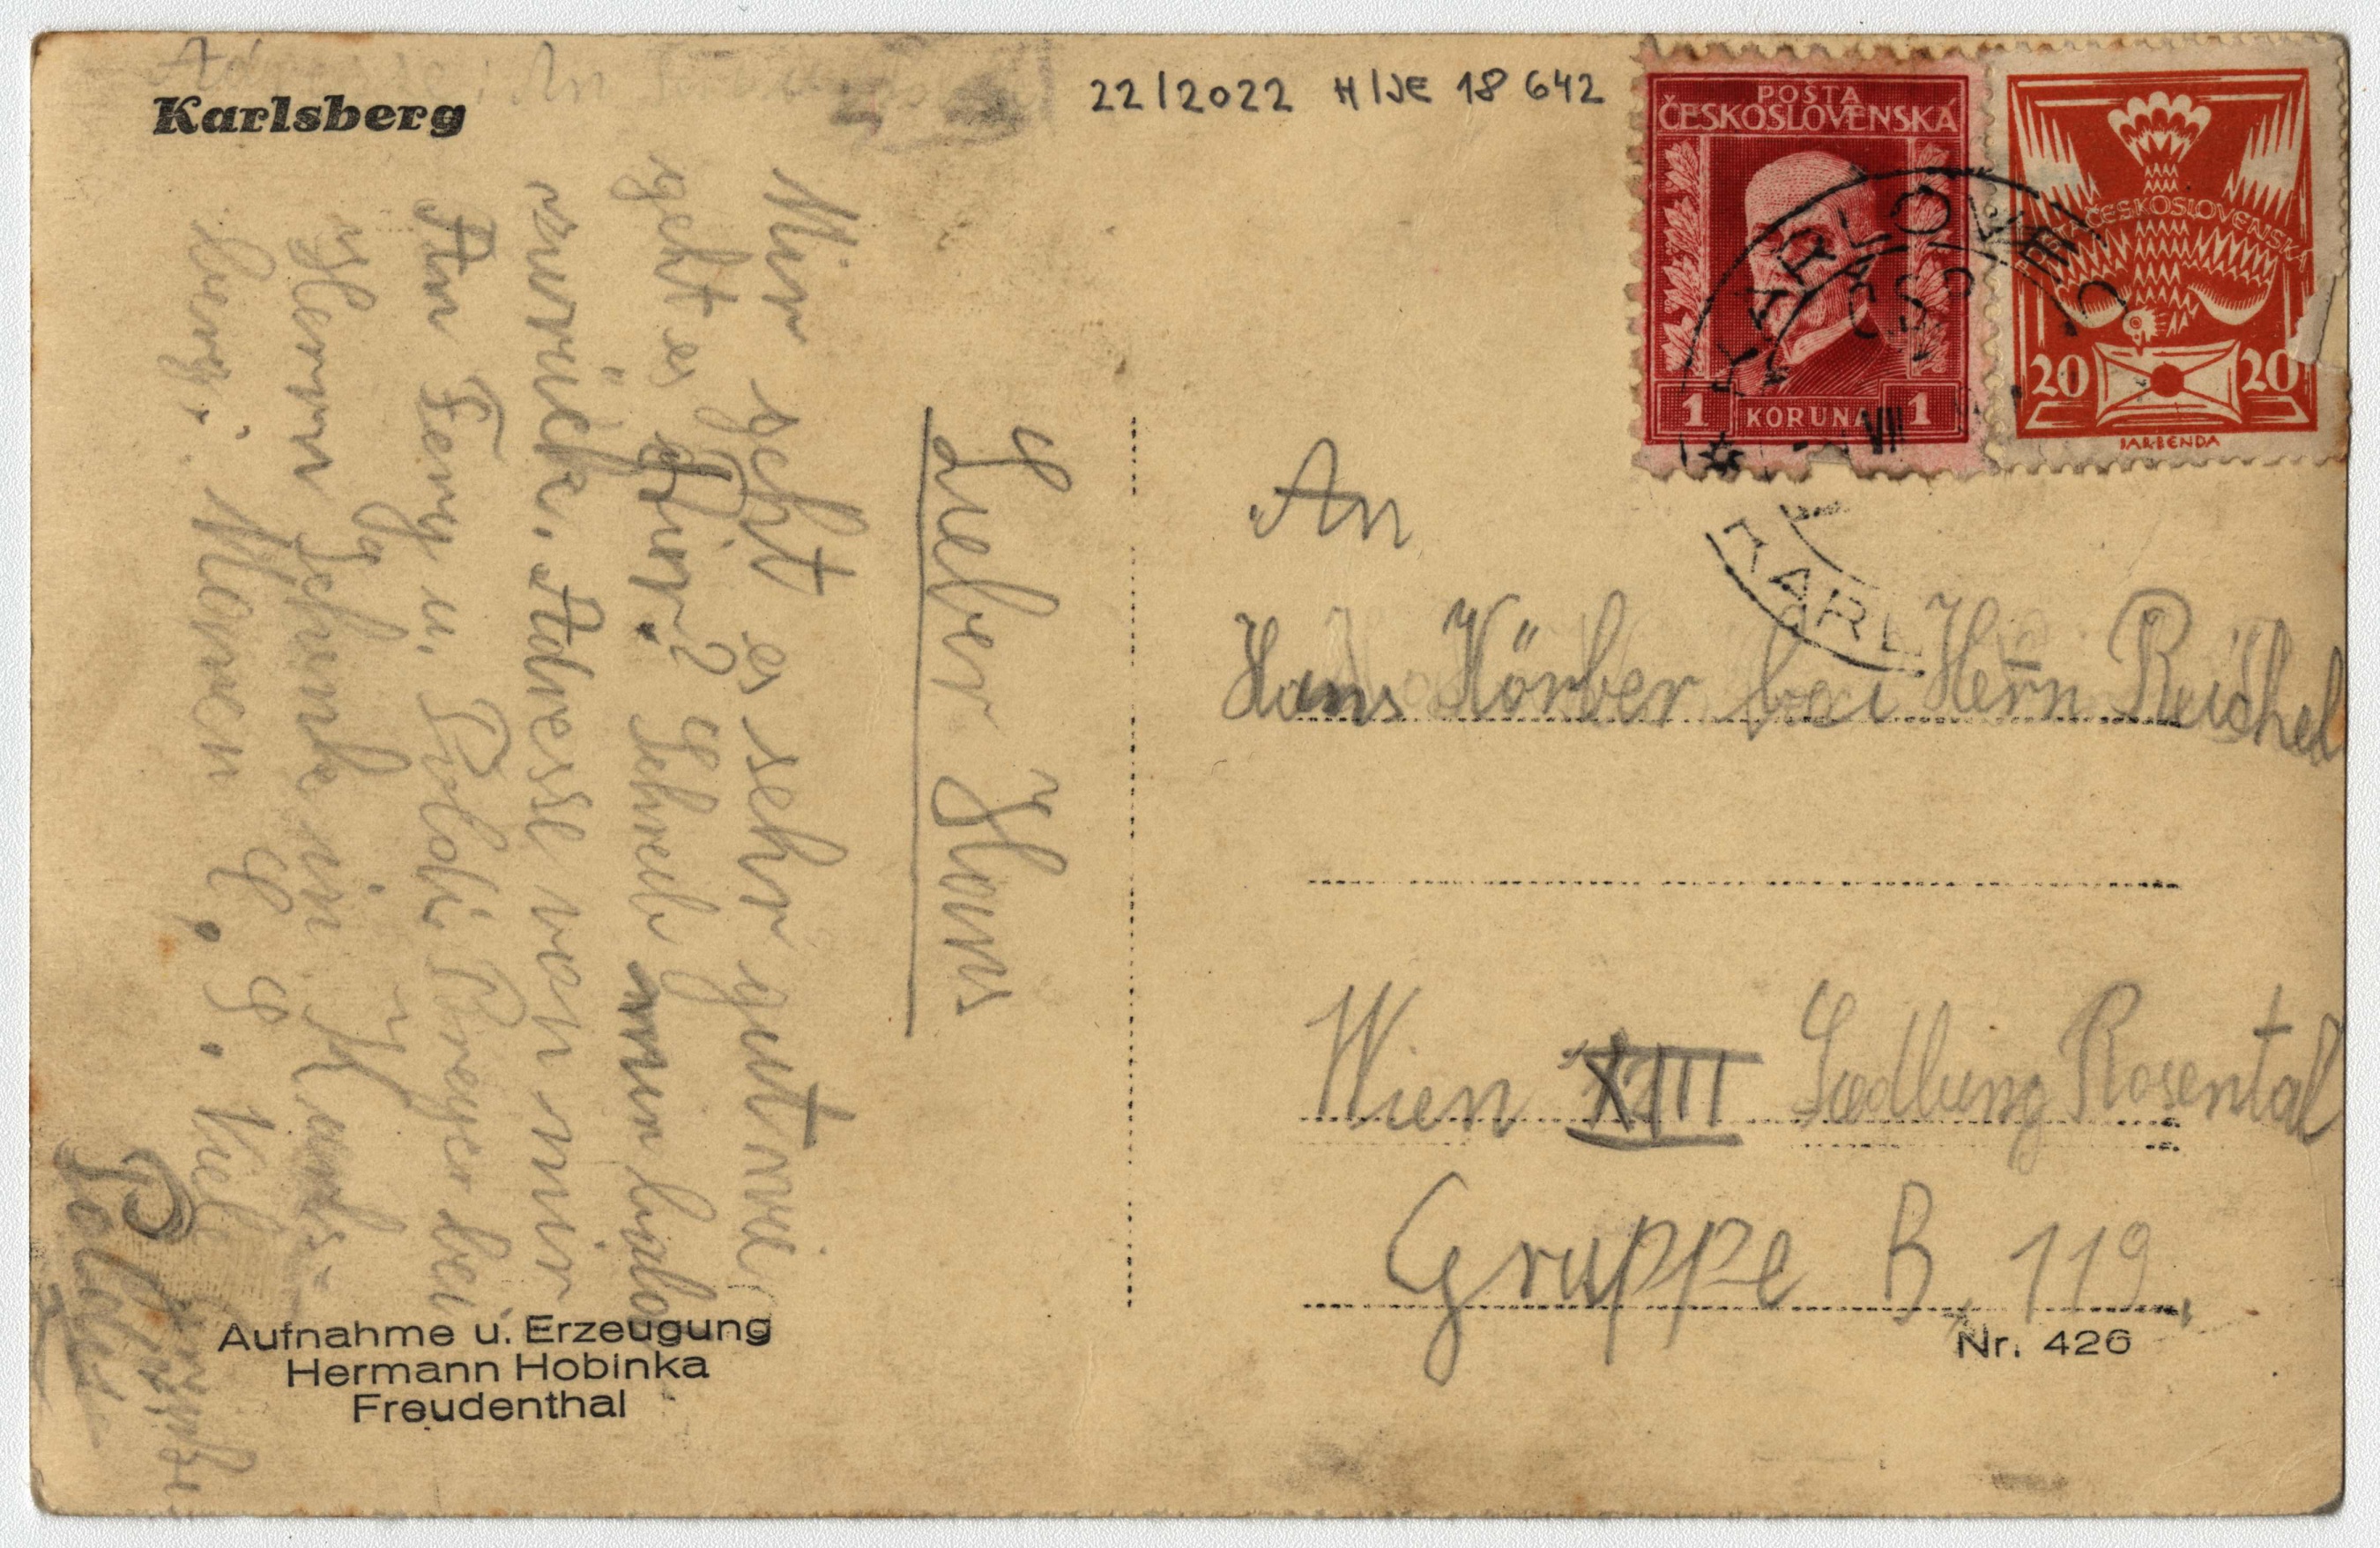 Karlsberg
22/2022 H/JE 18 642
POŠTA
ČESKOSLOVENSKÁ
1 KORUNA 1
ČESKOSLOVENSKÁ
20 20
JAR·BENDA
KARLOVEC
ČSR
VII
KARL
Lieber Hans
Mir geht es sehr gut wie
geht es Dir? Schreib nun bald
zurück. Adresse von mir
An Ferry u. Poldi Pinger bei
Herrn Schenk in Karls-
berg. Mören Č. S. Viel
Grüße
Poldi
An
Hans Körber bei Herrn Reichel
Wien XIII Siedlung Rosental
Gruppe B, 119.
Aufnahme u. Erzeugung
Hermann Hobinka
Freudenthal
Nr. 426